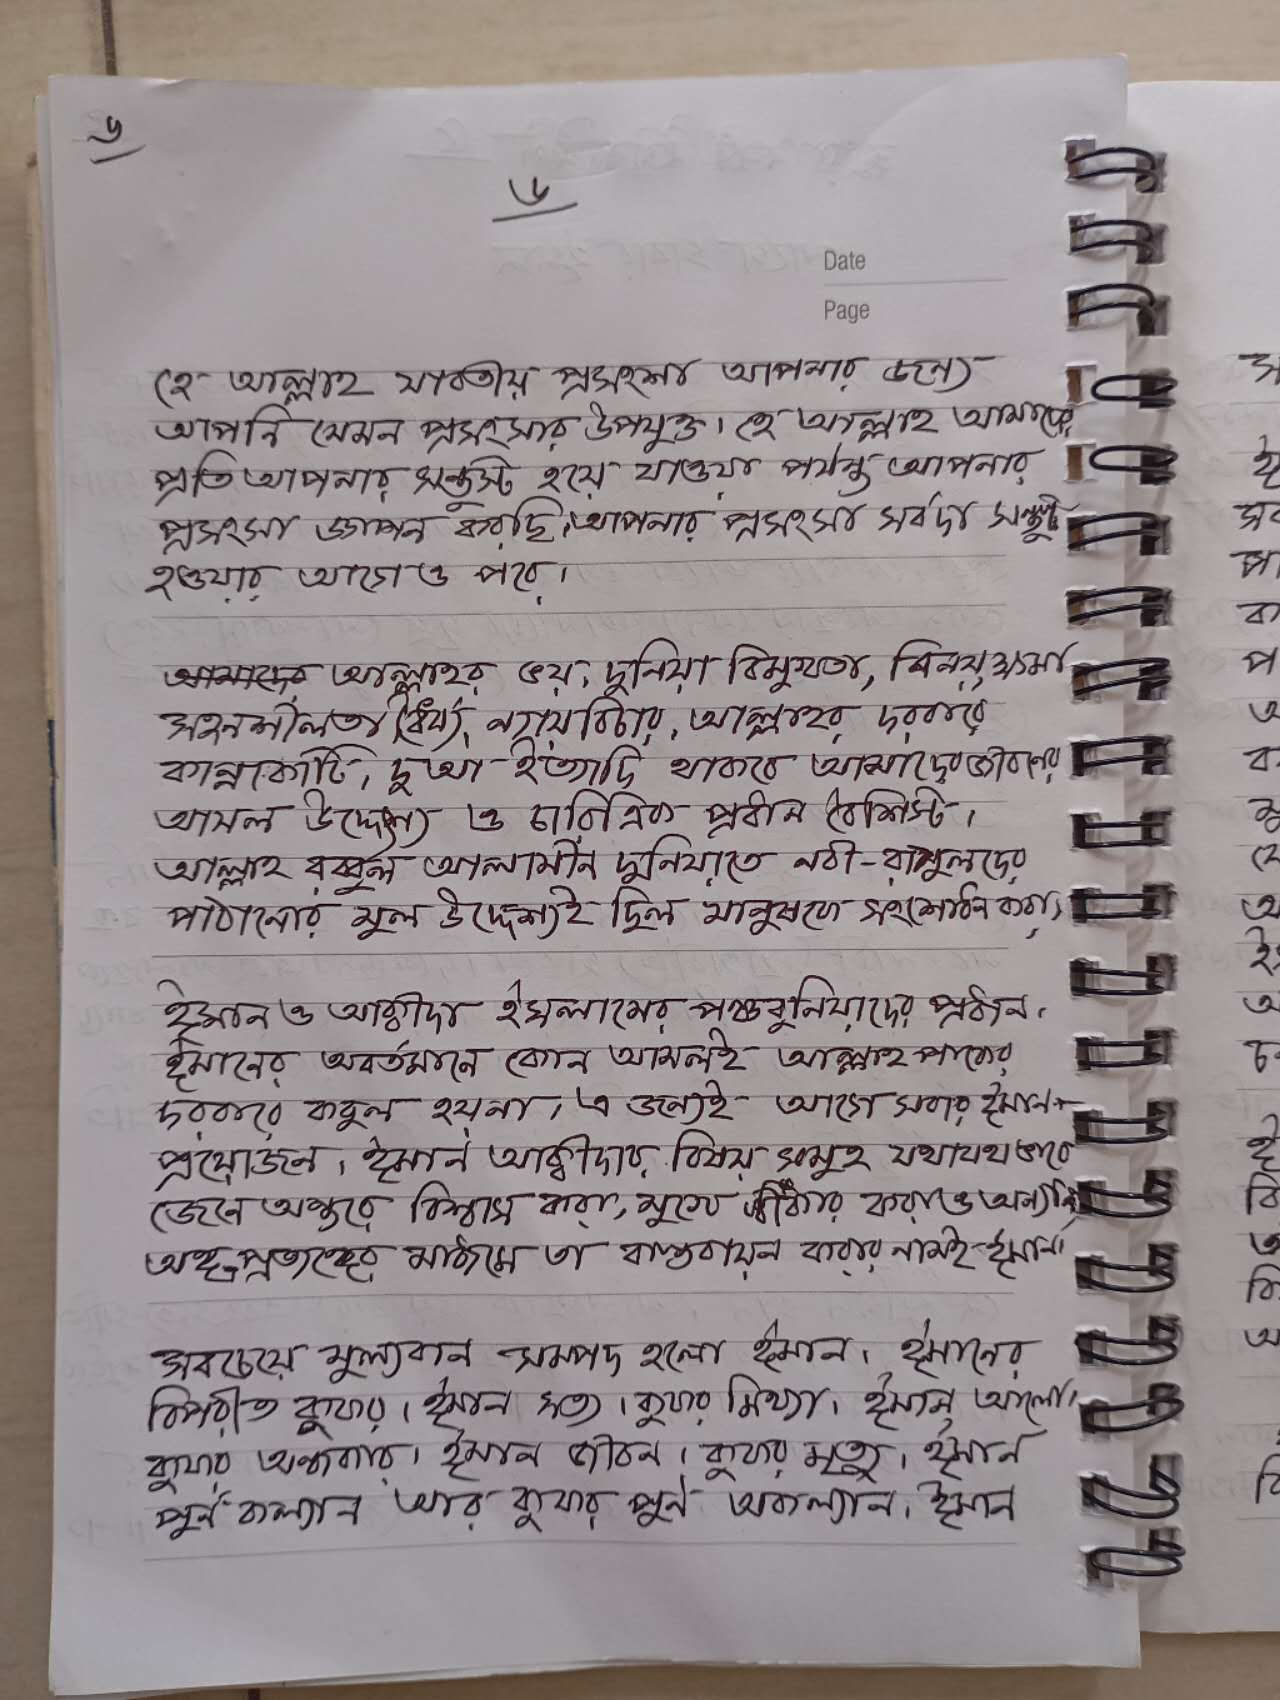 ৬
৬
Date
Page
হে আল্লাহ যাবতীয় প্রসংশা আপনার জন্যে
আপনি যেমন প্রসংসার উপযুক্ত। হে আল্লাহ আমাদের
প্রতি আপনার সন্তুস্টি হয়ে যাওয়া পর্যন্ত আপনার
প্রসংসা জ্ঞাপন করছি। আপনার প্রসংসা সর্বদা সন্তুষ্ট
হওয়ার আগে ও পরে।
আমাদের আল্লাহর ভয়, দুনিয়া বিমুখতা, বিনয়, ক্ষমা
সহনশীলতা ধৈর্য্য, ন্যায়বিচার, আল্লাহর দরবারে
কান্নাকাটি, দুআ ইত্যাদি থাকবে আমাদের জীবনের
আসল উদ্দেশ্য ও চারিত্রিক প্রধান বৈশিস্ট।
আল্লাহ রব্বুল আলামীন দুনিয়াতে নবী-রাসুলদের
পাঠানোর মুল উদ্দেশ্যই ছিল মানুষকে সংশোধন করা,
ঈমান ও আক্বীদা ইসলামের পঞ্চবুনিয়াদের প্রধান।
ঈমানের অবর্তমানে কোন আমলই আল্লাহ পাকের
দরবারে কবুল হয়না। এ জন্যেই আগে সবার ঈমান
প্রয়োজন। ঈমান আক্বীদার বিষয় সমুহ যথাযথ ভাবে
জেনে অন্তরে বিশ্বাস করা, মুখে স্বীকার করা ও অন্যান্য
অঙ্গ-প্রত্যঙ্গের মাধ্যমে তা বাস্তবায়ন করার নামই ঈমান।
সবচেয়ে মুল্যবান সম্পদ হলো ঈমান। ঈমানের
বিপরীত কুফর। ঈমান সত্য। কুফর মিথ্যা। ঈমান আলো।
কুফর অন্ধকার। ঈমান জীবন। কুফর মৃত্যু। ঈমান
পুর্ন কল্যান আর কুফর পুর্ন অকল্যান। ঈমান